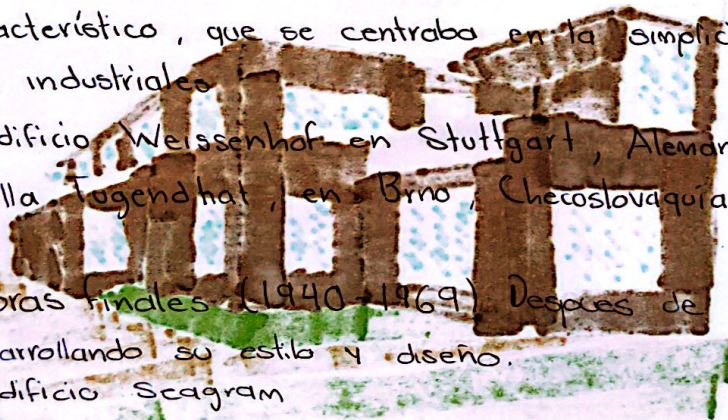 acterístico, que se centraba en la simplici
industriales
dificio Weissenhof en Stuttgart, Aleman
lla Togendhat, en Brno, Checoslovaquia
oras finales (1940-1969) Despues de
arrollando su estilo y diseño.
dificio Seagram